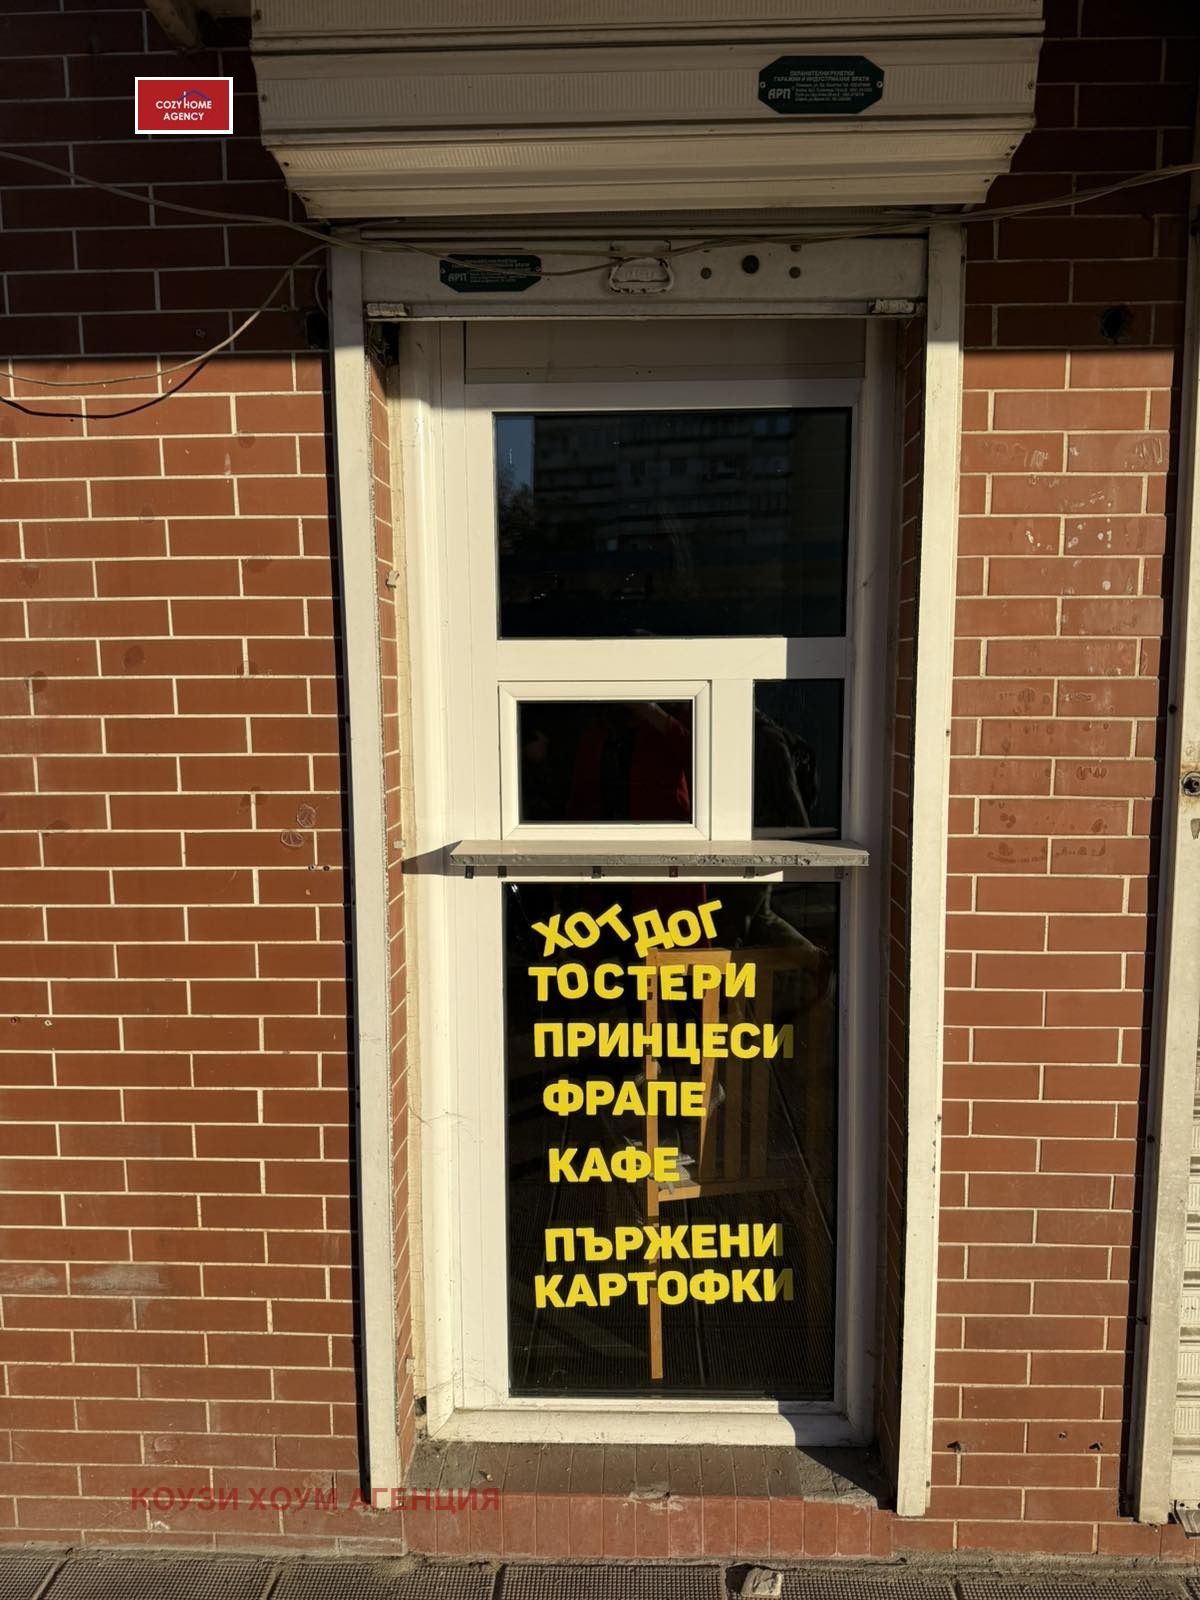 COZY HOME
AGENCY
ОХРАНИТЕЛНИ РУЛЕТКИ
ГАРАЖНИ И ИНДУСТРИАЛНИ ВРАТИ
АРП
АРП
ХОТДОГ
ТОСТЕРИ
ПРИНЦЕСИ
ФРАПЕ
КАФЕ
ПЪРЖЕНИ
КАРТОФКИ
КОУЗИ ХОУМ АГЕНЦИЯ